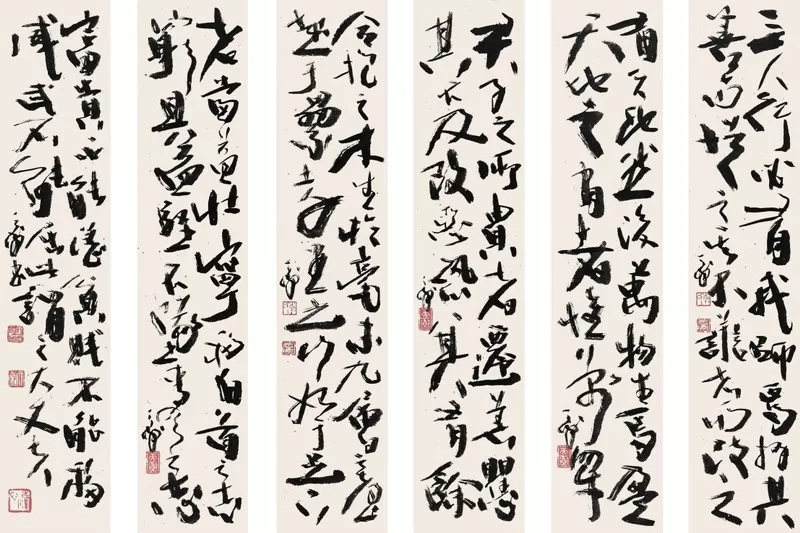 三人行必有我師焉擇其
善而從之其不善者而改之
有天地然後萬物生焉盈
天地之間者惟萬
君子之所貴者遷善懼
其不及改惡恐其有餘
合抱之木生於毫末九層之臺
起于累土千里之行始于足下
老當益壯寧移白首之志
窮且益堅不墜青雲之志
富貴不能淫貧賤不能移
威武不能屈此謂之大丈夫